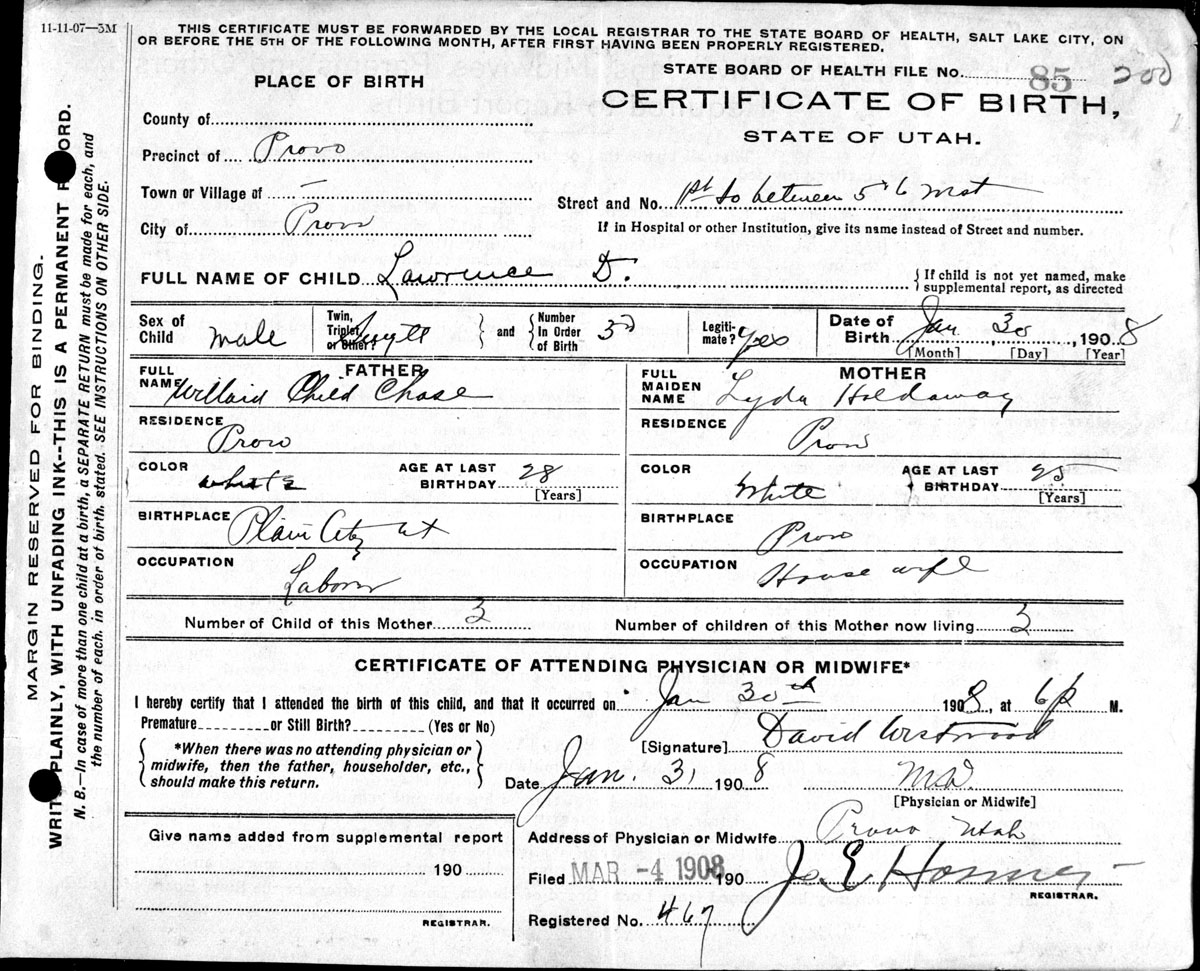 11-11-07—3M
THIS CERTIFICATE MUST BE FORWARDED BY THE LOCAL REGISTRAR TO THE STATE BOARD OF HEALTH, SALT LAKE CITY, ON
OR BEFORE THE 5TH OF THE FOLLOWING MONTH, AFTER FIRST HAVING BEEN PROPERLY REGISTERED.
MARGIN RESERVED FOR BINDING.
WRIT PLAINLY, WITH UNFADING INK--THIS IS A PERMANENT R ORD.
N. B.—In case of more than one child at a birth, a SEPARATE RETURN must be made for each, and
the number of each, in order of birth, stated. SEE INSTRUCTIONS ON OTHER SIDE.
PLACE OF BIRTH
STATE BOARD OF HEALTH FILE No. 85 200
CERTIFICATE OF BIRTH,
STATE OF UTAH.
County of
Precinct of Provo
Town or Village of —
Street and No. 1st So between 5 & 6 West
City of Provo
If in Hospital or other Institution, give its name instead of Street and number.
FULL NAME OF CHILD Lawrence D.
{If child is not yet named, make
supplemental report, as directed
Sex of Child male
Twin, Triplet, or Other?
and
Number In Order of Birth 3rd
Legiti-mate? yes
Date of Birth Jan 30, 1908
[Month] [Day] [Year]
FATHER
FULL NAME Willard Child Chase
RESIDENCE Provo
COLOR white
AGE AT LAST BIRTHDAY 28
[Years]
BIRTHPLACE Plain City Ut
OCCUPATION Laborer
MOTHER
FULL MAIDEN NAME Lyda Holdaway
RESIDENCE Provo
COLOR White
AGE AT LAST BIRTHDAY 25
[Years]
BIRTHPLACE Provo
OCCUPATION House wife
Number of Child of this Mother 3
Number of children of this Mother now living 3
CERTIFICATE OF ATTENDING PHYSICIAN OR MIDWIFE*
I hereby certify that I attended the birth of this child, and that it occurred on Jan 30th 1908, at 6 p M.
Premature or Still Birth? (Yes or No)
{*When there was no attending physician or
midwife, then the father, householder, etc.,
should make this return.}
[Signature] David Westwood
Date Jan. 31 1908
M.D.
[Physician or Midwife]
Give name added from supplemental report
190
REGISTRAR.
Address of Physician or Midwife Provo Utah
Filed MAR -4 1908 190
J E Hosmer
REGISTRAR.
Registered No. 467